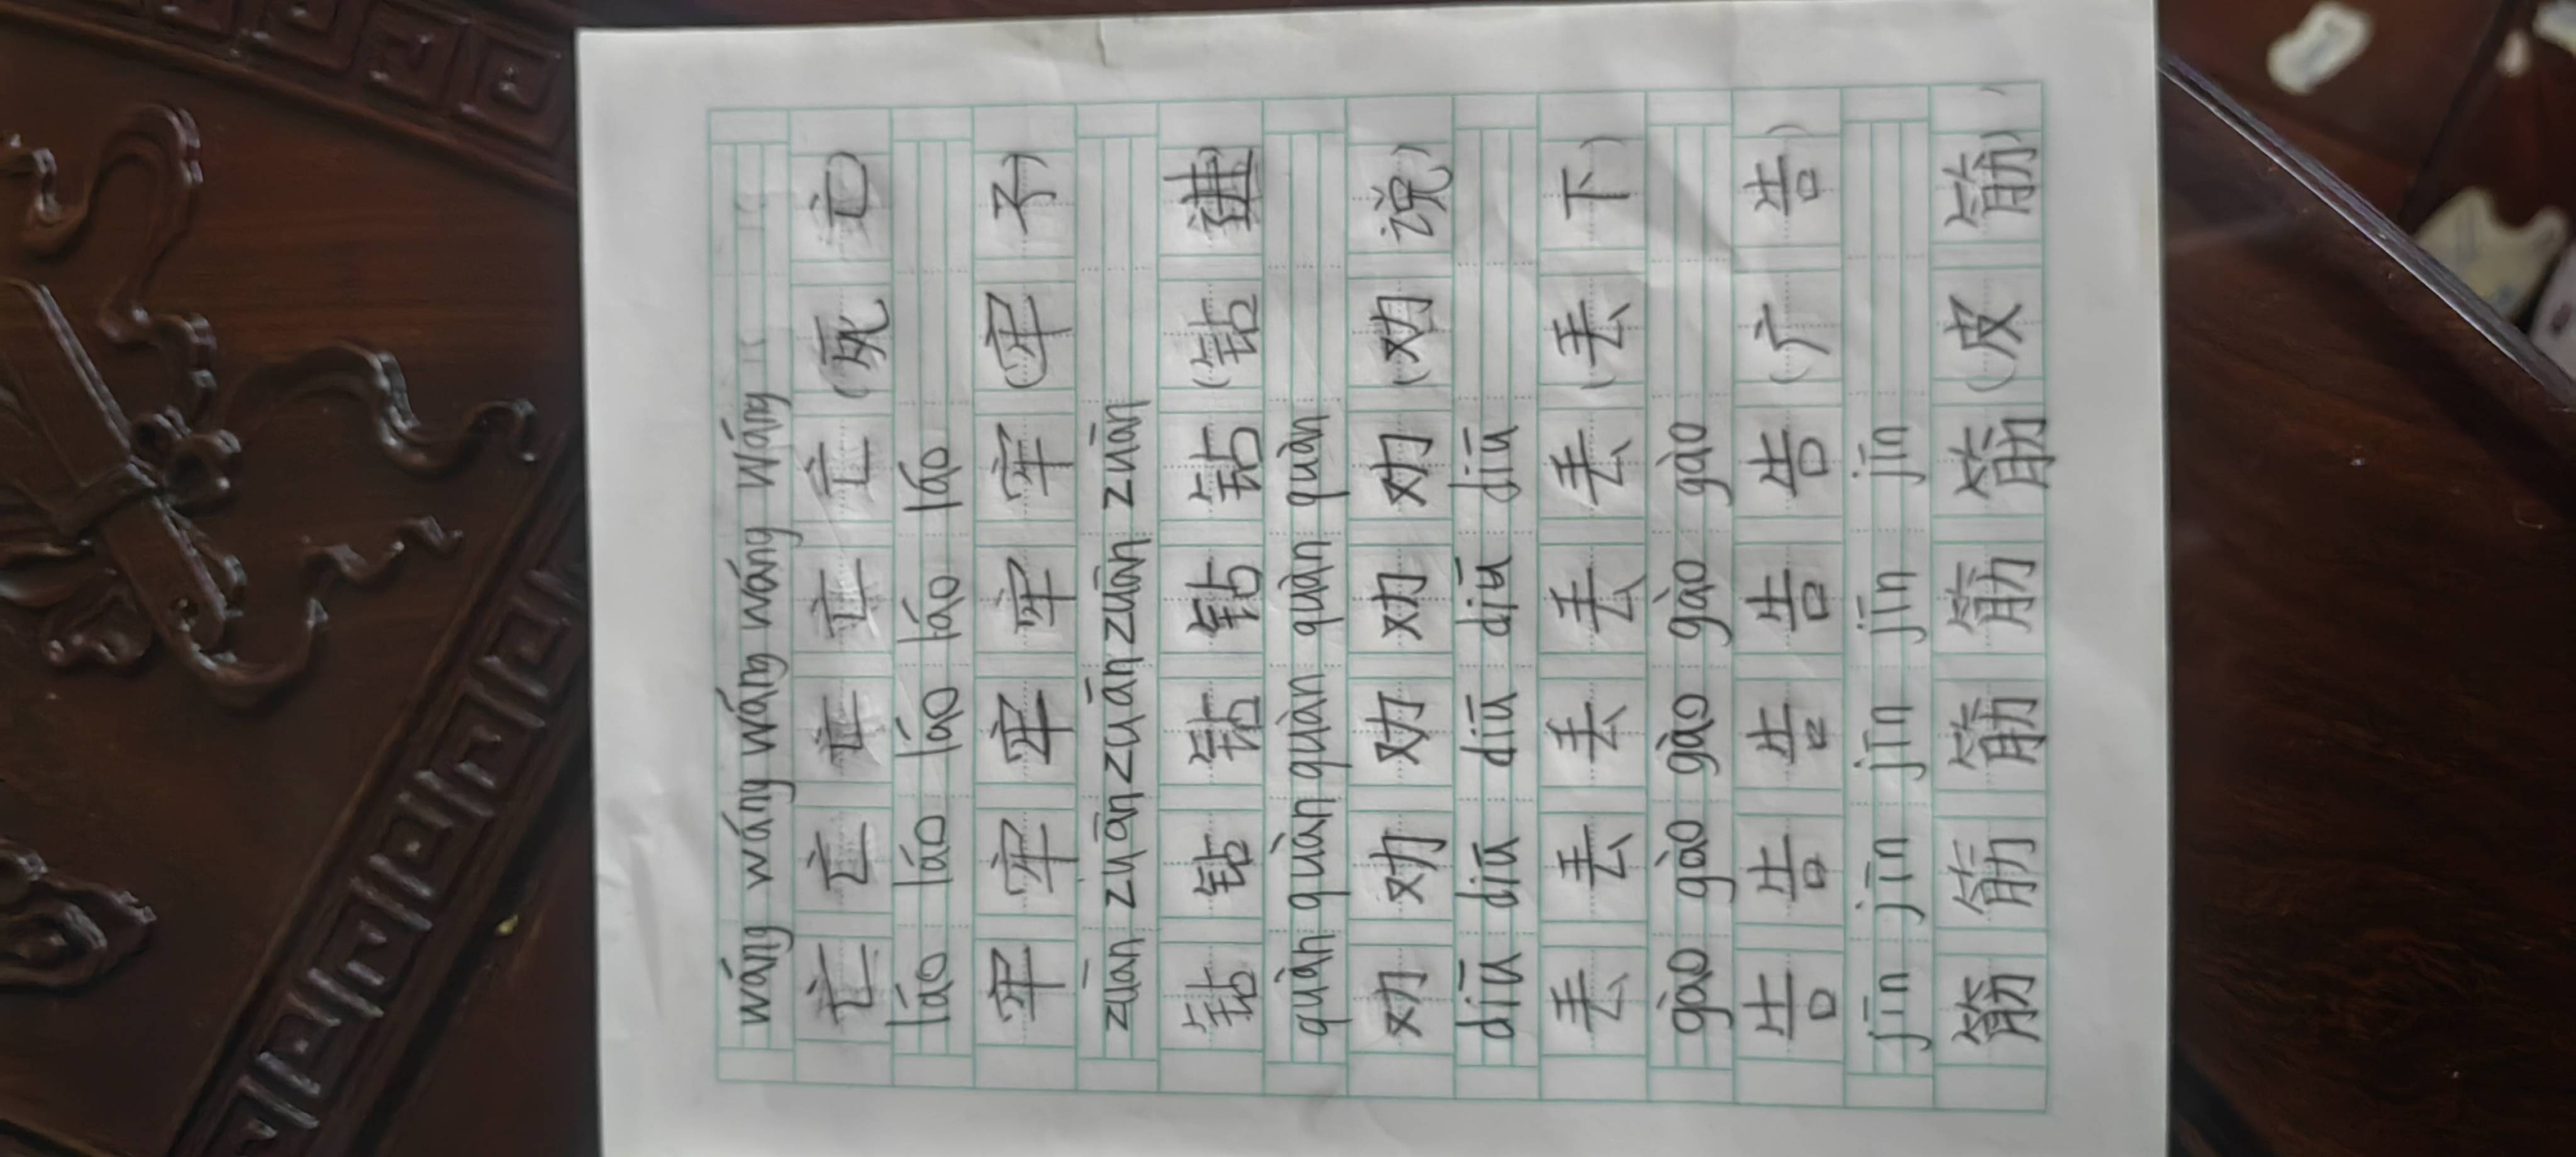 wáng wáng wáng wáng wáng
亡 亡 亡 亡 亡 (死 亡)
láo láo láo láo láo
牢 牢 牢 牢 牢 (牢 不)
zuān zuān zuān zuān zuān
钻 钻 钻 钻 钻 (钻 进)
quàn quàn quàn quàn quàn
劝 劝 劝 劝 劝 (劝 说)
diū diū diū diū diū
丢 丢 丢 丢 丢 (丢 下)
gào gào gào gào gào
告 告 告 告 告 (广 告)
jīn jīn jīn jīn jīn
筋 筋 筋 筋 筋 (皮 筋)